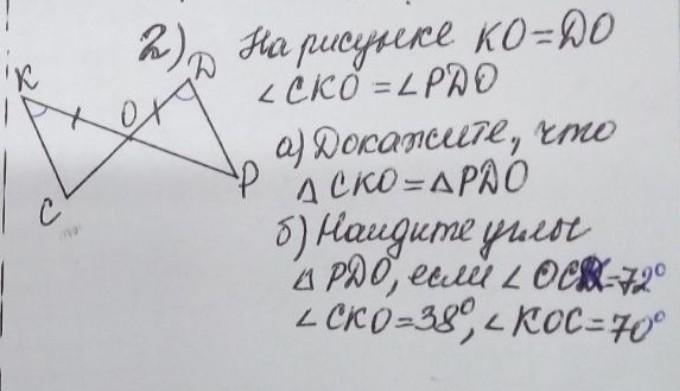 2) На рисунке KO=DO
∠CKO=∠PDO
а) Докажите, что
△CKO=△PDO
б) Найдите углы
△PDO, если ∠OCK=72°
∠CKO=38°, ∠KOC=70°
K
D
O
P
C